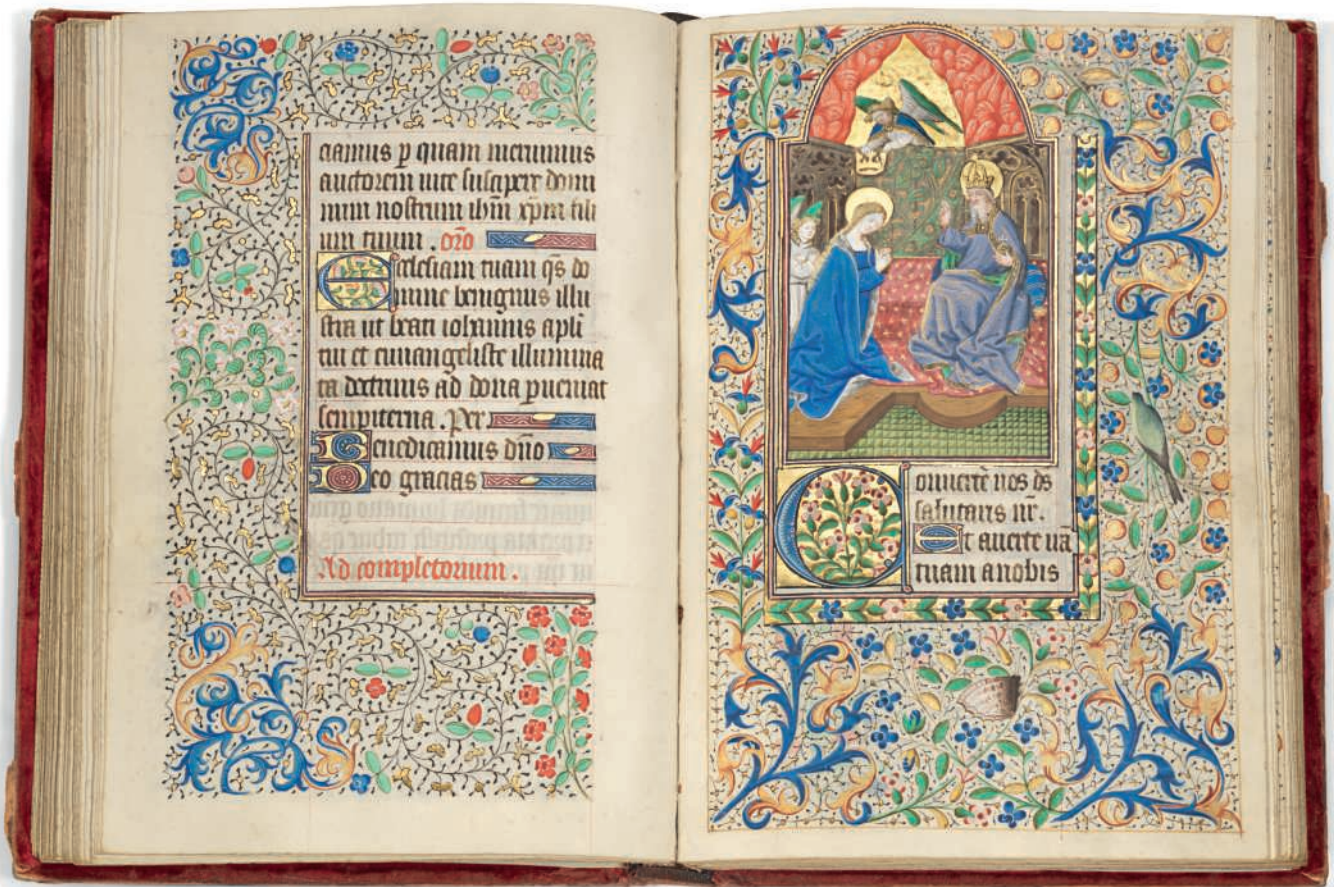 ciamus p̲ quam meruimus
auctorem uite suscipere domi
num nostrum ih̅m xp̅m fili
um tuum . or̅o
Ecclesiam tuam q̅s do
mine benignus illu
stra ut beati iohannis apl̅i
tui et euuangeliste illumina
ta doctrinis ad dona p̲ueniat
sempiterna . Per
Benedicamus dn̅o
Deo gracias
Ad completorium .
Conuerte nos ds̅
salutaris nr̅ .
Et auerte ira̅
tuam a nobis